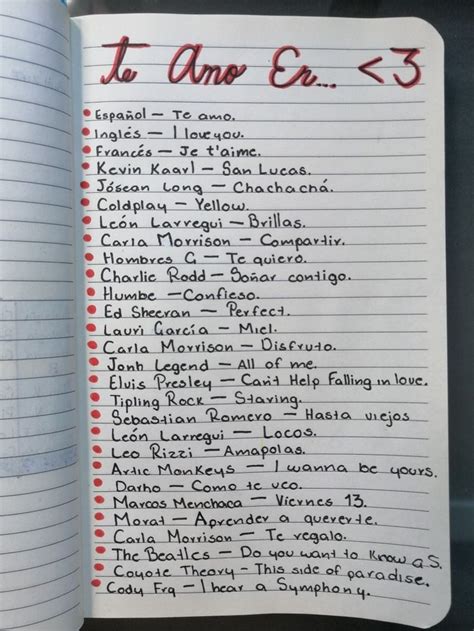 Te Amo En... <3
Español — Te amo.
Inglés — I love you.
Francés — Je t'aime.
Kevin Kaarl — San Lucas.
Jósean Long — Chachachá.
Coldplay — Yellow.
León Larregui — Brillas.
Carla Morrison — Compartir.
Hombres G — Te quiero.
Charlie Rodd — Soñar contigo.
Humbe — Confieso.
Ed Sheeran — Perfect.
Lauri García — Miel.
Carla Morrison — Disfruto.
Jonh Legend — All of me.
Elvis Presley — Can't Help Falling in love.
Tipling Rock — Staring.
Sebastian Romero — Hasta viejos
León Larregui — Locos.
Leo Rizzi — Amapolas.
Artic Monkeys — I wanna be yours.
Darho — Como te veo.
Marcos Menchaca — Viernes 13.
Morat — Aprender a quererte.
Carla Morrison — Te regalo.
The Beatles — Do you want to Know a S.
Coyote Theory - This side of paradise.
Cody Frq — I hear a Symphony.